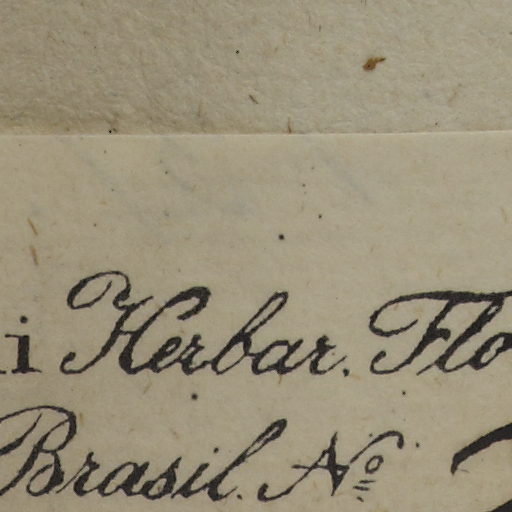 i Herbar. Flo
Brasil. Nº